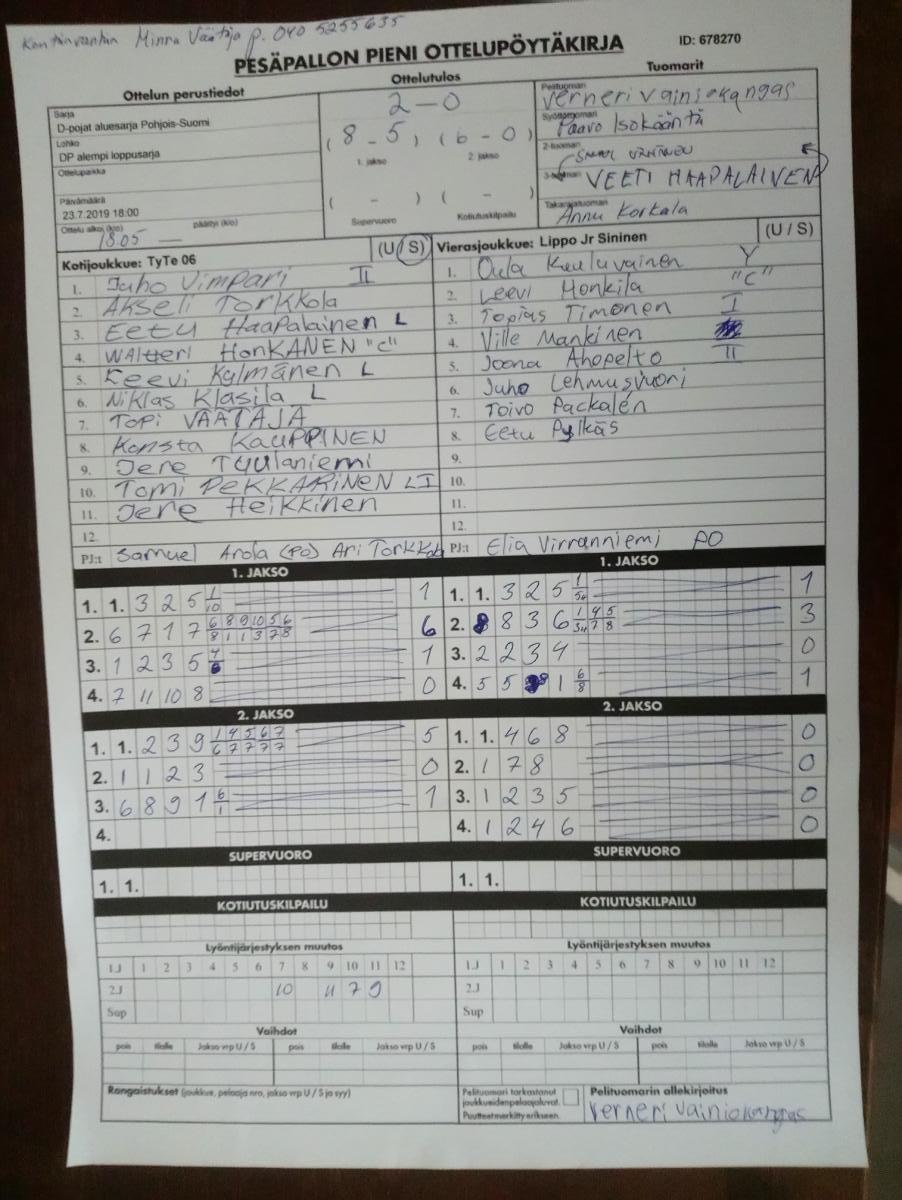 Minna Väätäja p. 040 5255635
PESÄPALLON PIENI OTTELUPÖYTÄKIRJA
ID: 678270
Ottelun perustiedot
Sarja
D-pojat aluesarja Pohjois-Suomi
Lohko
DP alempi loppusarja
Ottelupaikka
Päivämäärä
23.7.2019 18:00
Ottelu alkoi (klo) päättyi (klo)
18.05 —
Ottelutulos
2-0
(8-5) (6-0)
1. jakso 2. jakso
( - ) ( - )
Supervuoro Kotiutuskilpailu
Tuomarit
Pelituomari
Verneri Vainiokangas
Syöttötuomari
Paavo Isokääntä
2-tuomari
3-tuomari
VEETI HAAPALAINEN
Takarajatuomari
Annu Korkala
Kotijoukkue: TyTe 06 (U / S)
1. Juho Vimpari II
2. Akseli Torkkola
3. Eetu Haapalainen L
4. Waltteri HonKANEN "C"
5. Keevi Kylmänen L
6. Niklas Klasila L
7. Topi VÄÄTÄJÄ
8. Konsta KAUPPINEN
9. Jere Tyulaniemi
10. Tomi PEKKARINEN L I
11. Jere Heikkinen
12.
PJ:t Samuel Arola (PO) Ari Torkkola
Vierasjoukkue: Lippo Jr Sininen (U / S)
1. Oula Kuuluvainen Y
2. Leevi Honkila "C"
3. Topias Timonen I
4. Ville Mankinen
5. Joona Ahopelto II
6. Juho Lehmusvuori
7. Toivo Packalén
8. Eetu Pylkäs
9.
10.
11.
12.
PJ:t Elia Virranniemi PO
1. JAKSO
1. 1. 3 2 5 1/10 1
2. 6 7 1 7 6/8 8/1 9/1 10/3 5/7 6/8 6
3. 1 2 3 5 1
4. 7 11 10 8 0
1. JAKSO
1. 1. 3 2 5 1
2. 8 3 6 4/7 5/8 3
3. 2 2 3 4 0
4. 5 5 1 6/8 1
2. JAKSO
1. 1. 2 3 9 1/6 4/7 5/7 6/7 7/7 5
2. 1 1 2 3 0
3. 6 8 9 1 6/1 1
4.
2. JAKSO
1. 1. 4 6 8 0
2. 1 7 8 0
3. 1 2 3 5 0
4. 1 2 4 6 0
SUPERVUORO
1. 1.
SUPERVUORO
1. 1.
KOTIUTUSKILPAILU
KOTIUTUSKILPAILU
Lyöntijärjestyksen muutos
1J 1 2 3 4 5 6 7 8 9 10 11 12
2J 10 11 7 9
Sup
Lyöntijärjestyksen muutos
1J 1 2 3 4 5 6 7 8 9 10 11 12
2J
Sup
Vaihdot
pois tilalle Jakso vrp U / S pois tilalle Jakso vrp U / S
Vaihdot
pois tilalle Jakso vrp U / S pois tilalle Jakso vrp U / S
Rangaistukset (joukkue, pelaaja nro, jakso vrp U / S ja syy)
Pelituomari tarkastanut
joukkueiden pelaajaluvat.
Puutteet merkitty erikseen.
Pelituomarin allekirjoitus
Verneri Vainiokangas